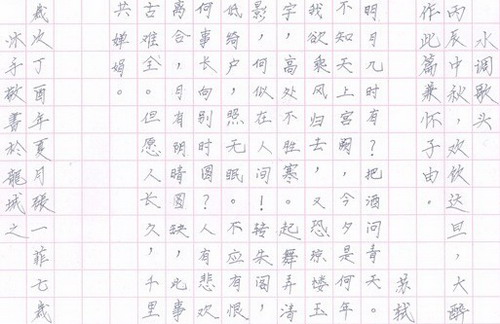 水调歌头
丙辰中秋，欢饮达旦，大醉
作此篇兼怀，子由。
苏轼
明月几时有？把酒问青天。
不知天上宫阙，今夕是何年。
我欲乘风归去，又恐琼楼玉
宇，高处不胜寒。起舞弄清
影，何似在人间！转朱阁，
低绮户，照无眠。不应有恨，
何事长向别时圆？人有悲欢
离合，月有阴晴圆缺，此事
古难全。但愿人长久，千里
共婵娟。
歲次丁酉年夏月張一菲七歲
冰子敬書於龍城之